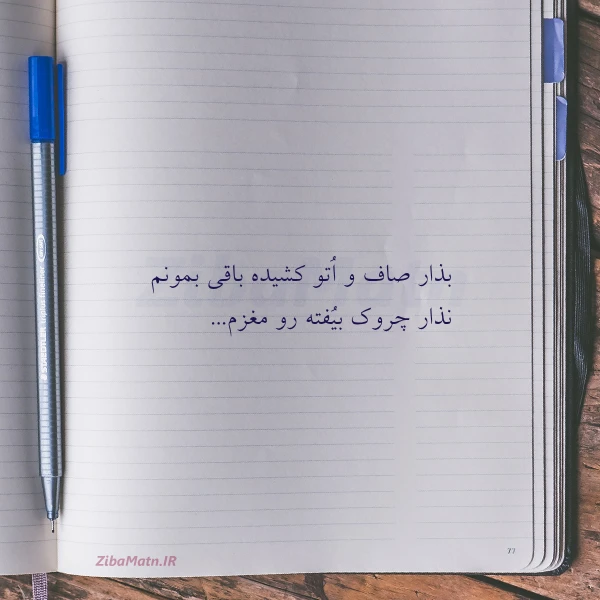 بذار صاف و اُتو کشیده باقی بمونم
نذار چروک بیُفته رو مغزم...
ZibaMatn.IR